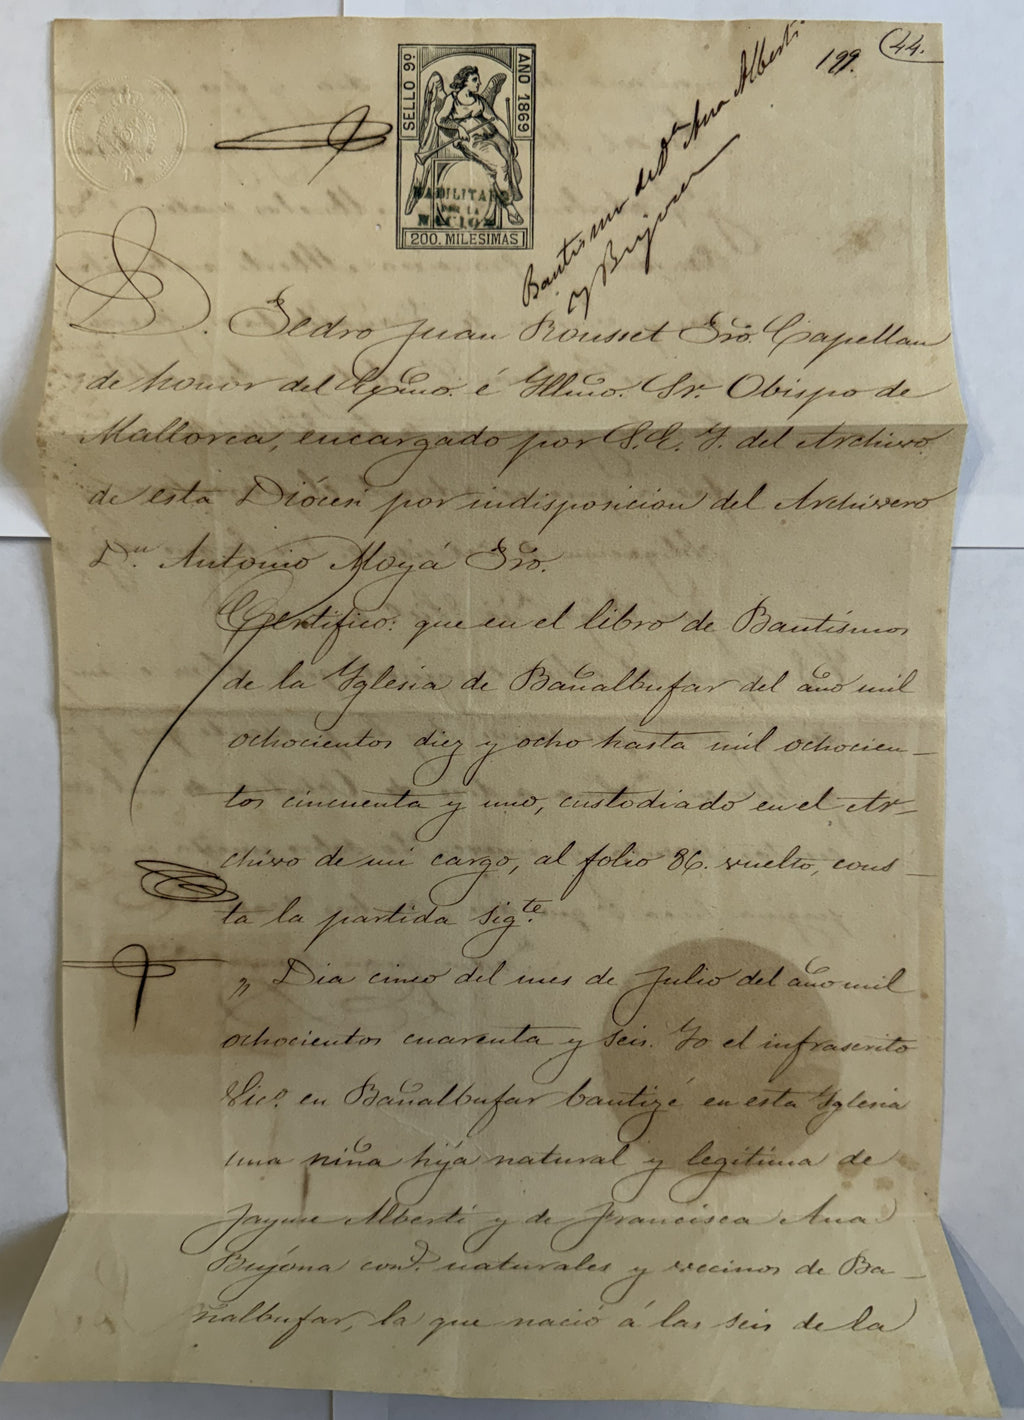 44.
199.
SELLO 9º
AÑO 1869
HABILITADO
POR LA
NACION
200. MILESIMAS
Bautismo de Dª Ana Alberti
y Bujona
D. Pedro Juan Rousset Pro. Capellan
de honor del Excmo. é Yllmo. Sr. Obispo de
Mallorca, encargado por S. E. Y. del Archivo
de esta Diócesi por indisposicion del Archivero
Dn. Antonio Moyá Pro.
Certifico: que en el libro de Bautismos
de la Yglesia de Bañalbufar del año mil
ochocientos diez y ocho hasta mil ochocien-
tos cincuenta y uno, custodiado en el Ar-
chivo de mi cargo, al folio 86. vuelto, cons-
ta la partida sigte.
„ Dia cinco del mes de Julio del año mil
ochocientos cuarenta y seis. Yo el infrascrito
Vico. en Bañalbufar bautizé en esta Yglesia
una niña hija natural y legítima de
Jayme Albertí y de Francisca Ana
Bujóna cons. naturales y vecinos de Ba-
ñalbufar, la que nació á las seis de la